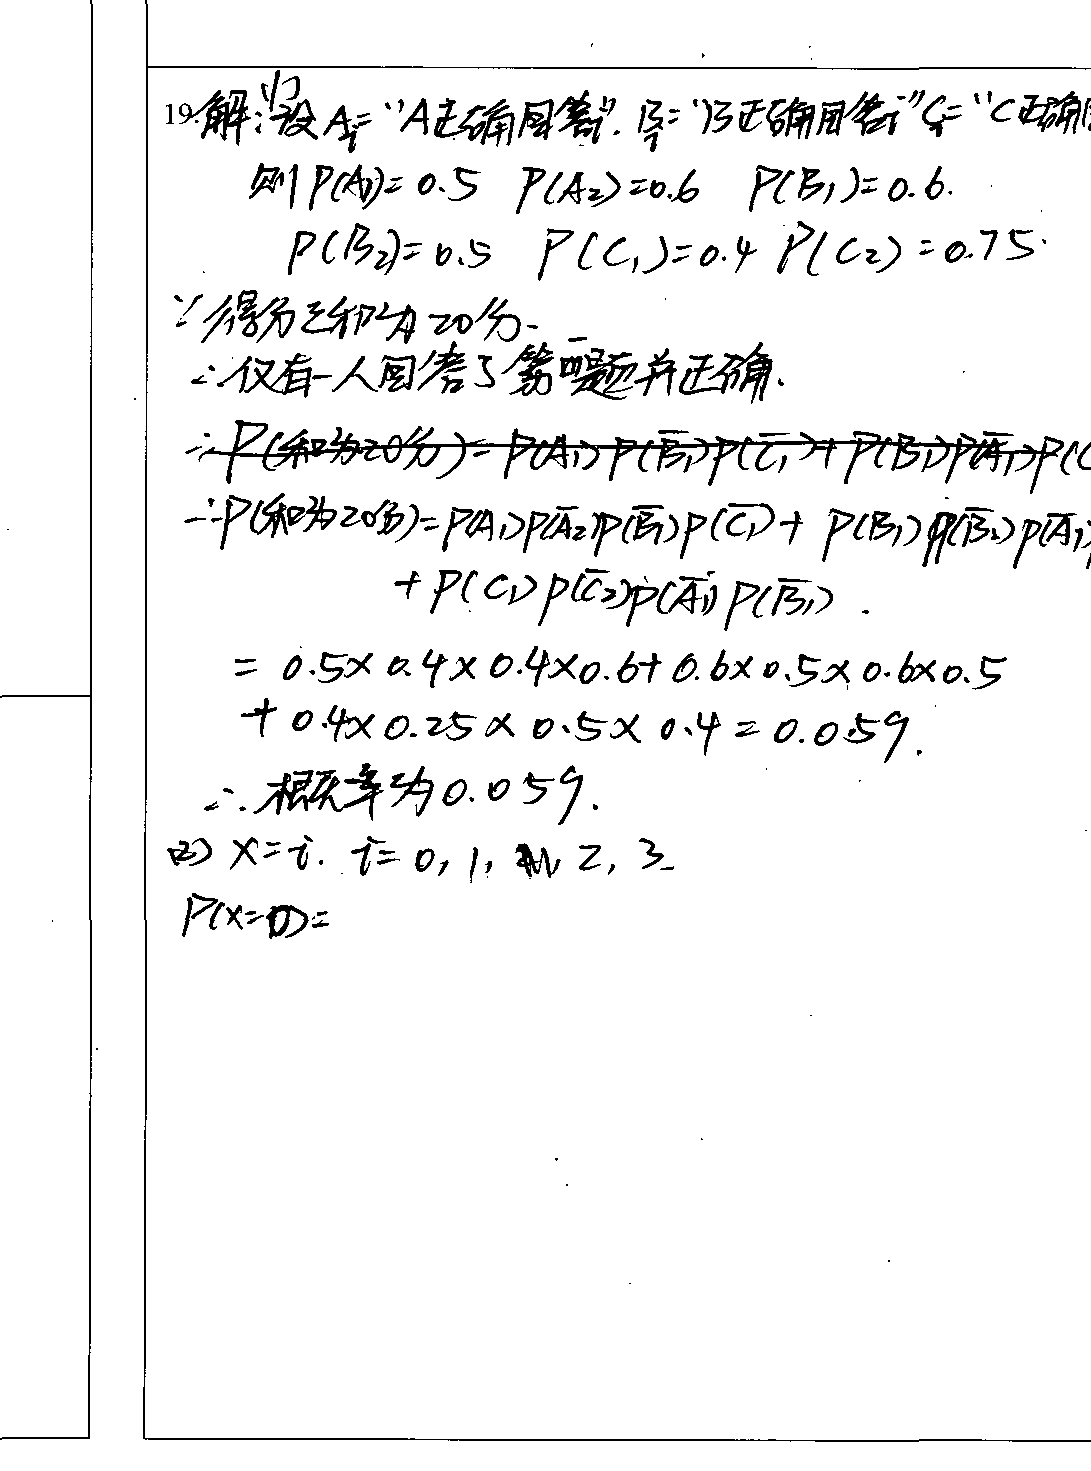 19.解:(1)设Ai="A正确回答i".Bi="B正确回答i"Ci="C正确
则P(A1)=0.5 P(A2)=0.6 P(B1)=0.6.
P(B2)=0.5 P(C1)=0.4 P(C2)=0.75.
∵得分之和为20分.
∴仅有一人回答了第二题并正确.
∴P(和为20分)=P(A1)P(B̅1)P(C̅1)+P(B1)P(A̅1)P(C
∴P(和为20分)=P(A1)P(A̅2)P(B̅1)P(C̅1)+P(B1)P(B̅2)P(A̅1)
+P(C1)P(C̅2)P(A̅1)P(B̅1).
=0.5×0.4×0.4×0.6+0.6×0.5×0.6×0.5
+0.4×0.25×0.5×0.4=0.059.
∴概率为0.059.
(2)X=i. i=0,1,2,3
P(X=0)=